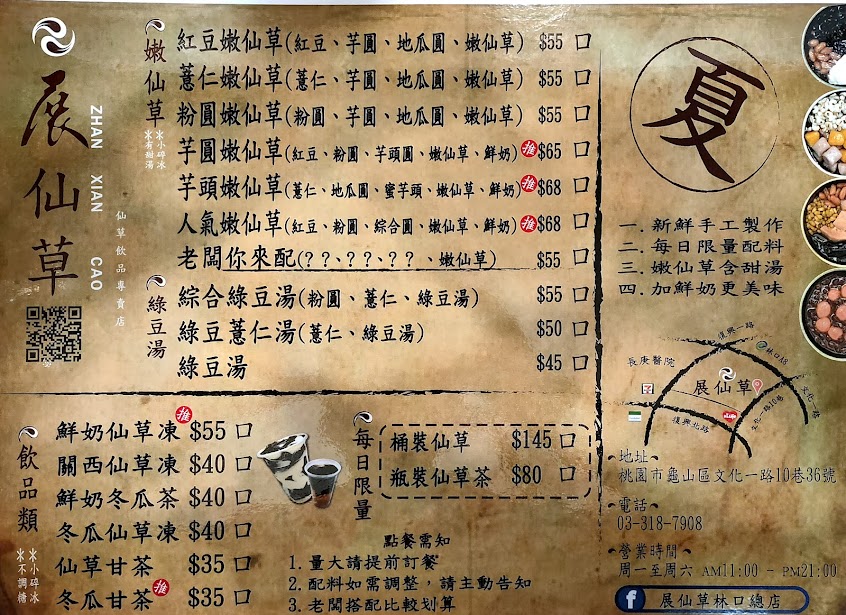 展仙草
ZHAN XIAN CAO
仙草飲品專賣店
嫩仙草
※小碎冰
※有甜湯
紅豆嫩仙草(紅豆、芋圓、地瓜圓、嫩仙草) $55 口
薏仁嫩仙草(薏仁、芋圓、地瓜圓、嫩仙草) $55 口
粉圓嫩仙草(粉圓、芋圓、地瓜圓、嫩仙草) $55 口
芋圓嫩仙草(紅豆、粉圓、芋頭圓、嫩仙草、鮮奶) 推 $65 口
芋頭嫩仙草(薏仁、地瓜圓、蜜芋頭、嫩仙草、鮮奶) 推 $68 口
人氣嫩仙草(紅豆、粉圓、綜合圓、嫩仙草、鮮奶) 推 $68 口
老闆你來配(??、??、??、嫩仙草) $55 口
綠豆湯
綜合綠豆湯(粉圓、薏仁、綠豆湯) $55 口
綠豆薏仁湯(薏仁、綠豆湯) $50 口
綠豆湯 $45 口
夏
一.新鮮手工製作
二.每日限量配料
三.嫩仙草含甜湯
四.加鮮奶更美味
復興一路
林口A8
長庚醫院
展仙草
文化一路
文化一路10巷
復興北路
飲品類
※小碎冰
※不調糖
鮮奶仙草凍 推 $55 口
關西仙草凍 $40 口
鮮奶冬瓜茶 $40 口
冬瓜仙草凍 $40 口
仙草甘茶 $35 口
冬瓜甘茶 推 $35 口
每日限量
桶裝仙草 $145 口
瓶裝仙草茶 $80 口
點餐需知
1.量大請提前訂餐
2.配料如需調整，請主動告知
3.老闆搭配比較划算
地址
桃園市龜山區文化一路10巷36號
電話
03-318-7908
營業時間
周一至周六 AM11:00 - PM21:00
f 展仙草林口總店